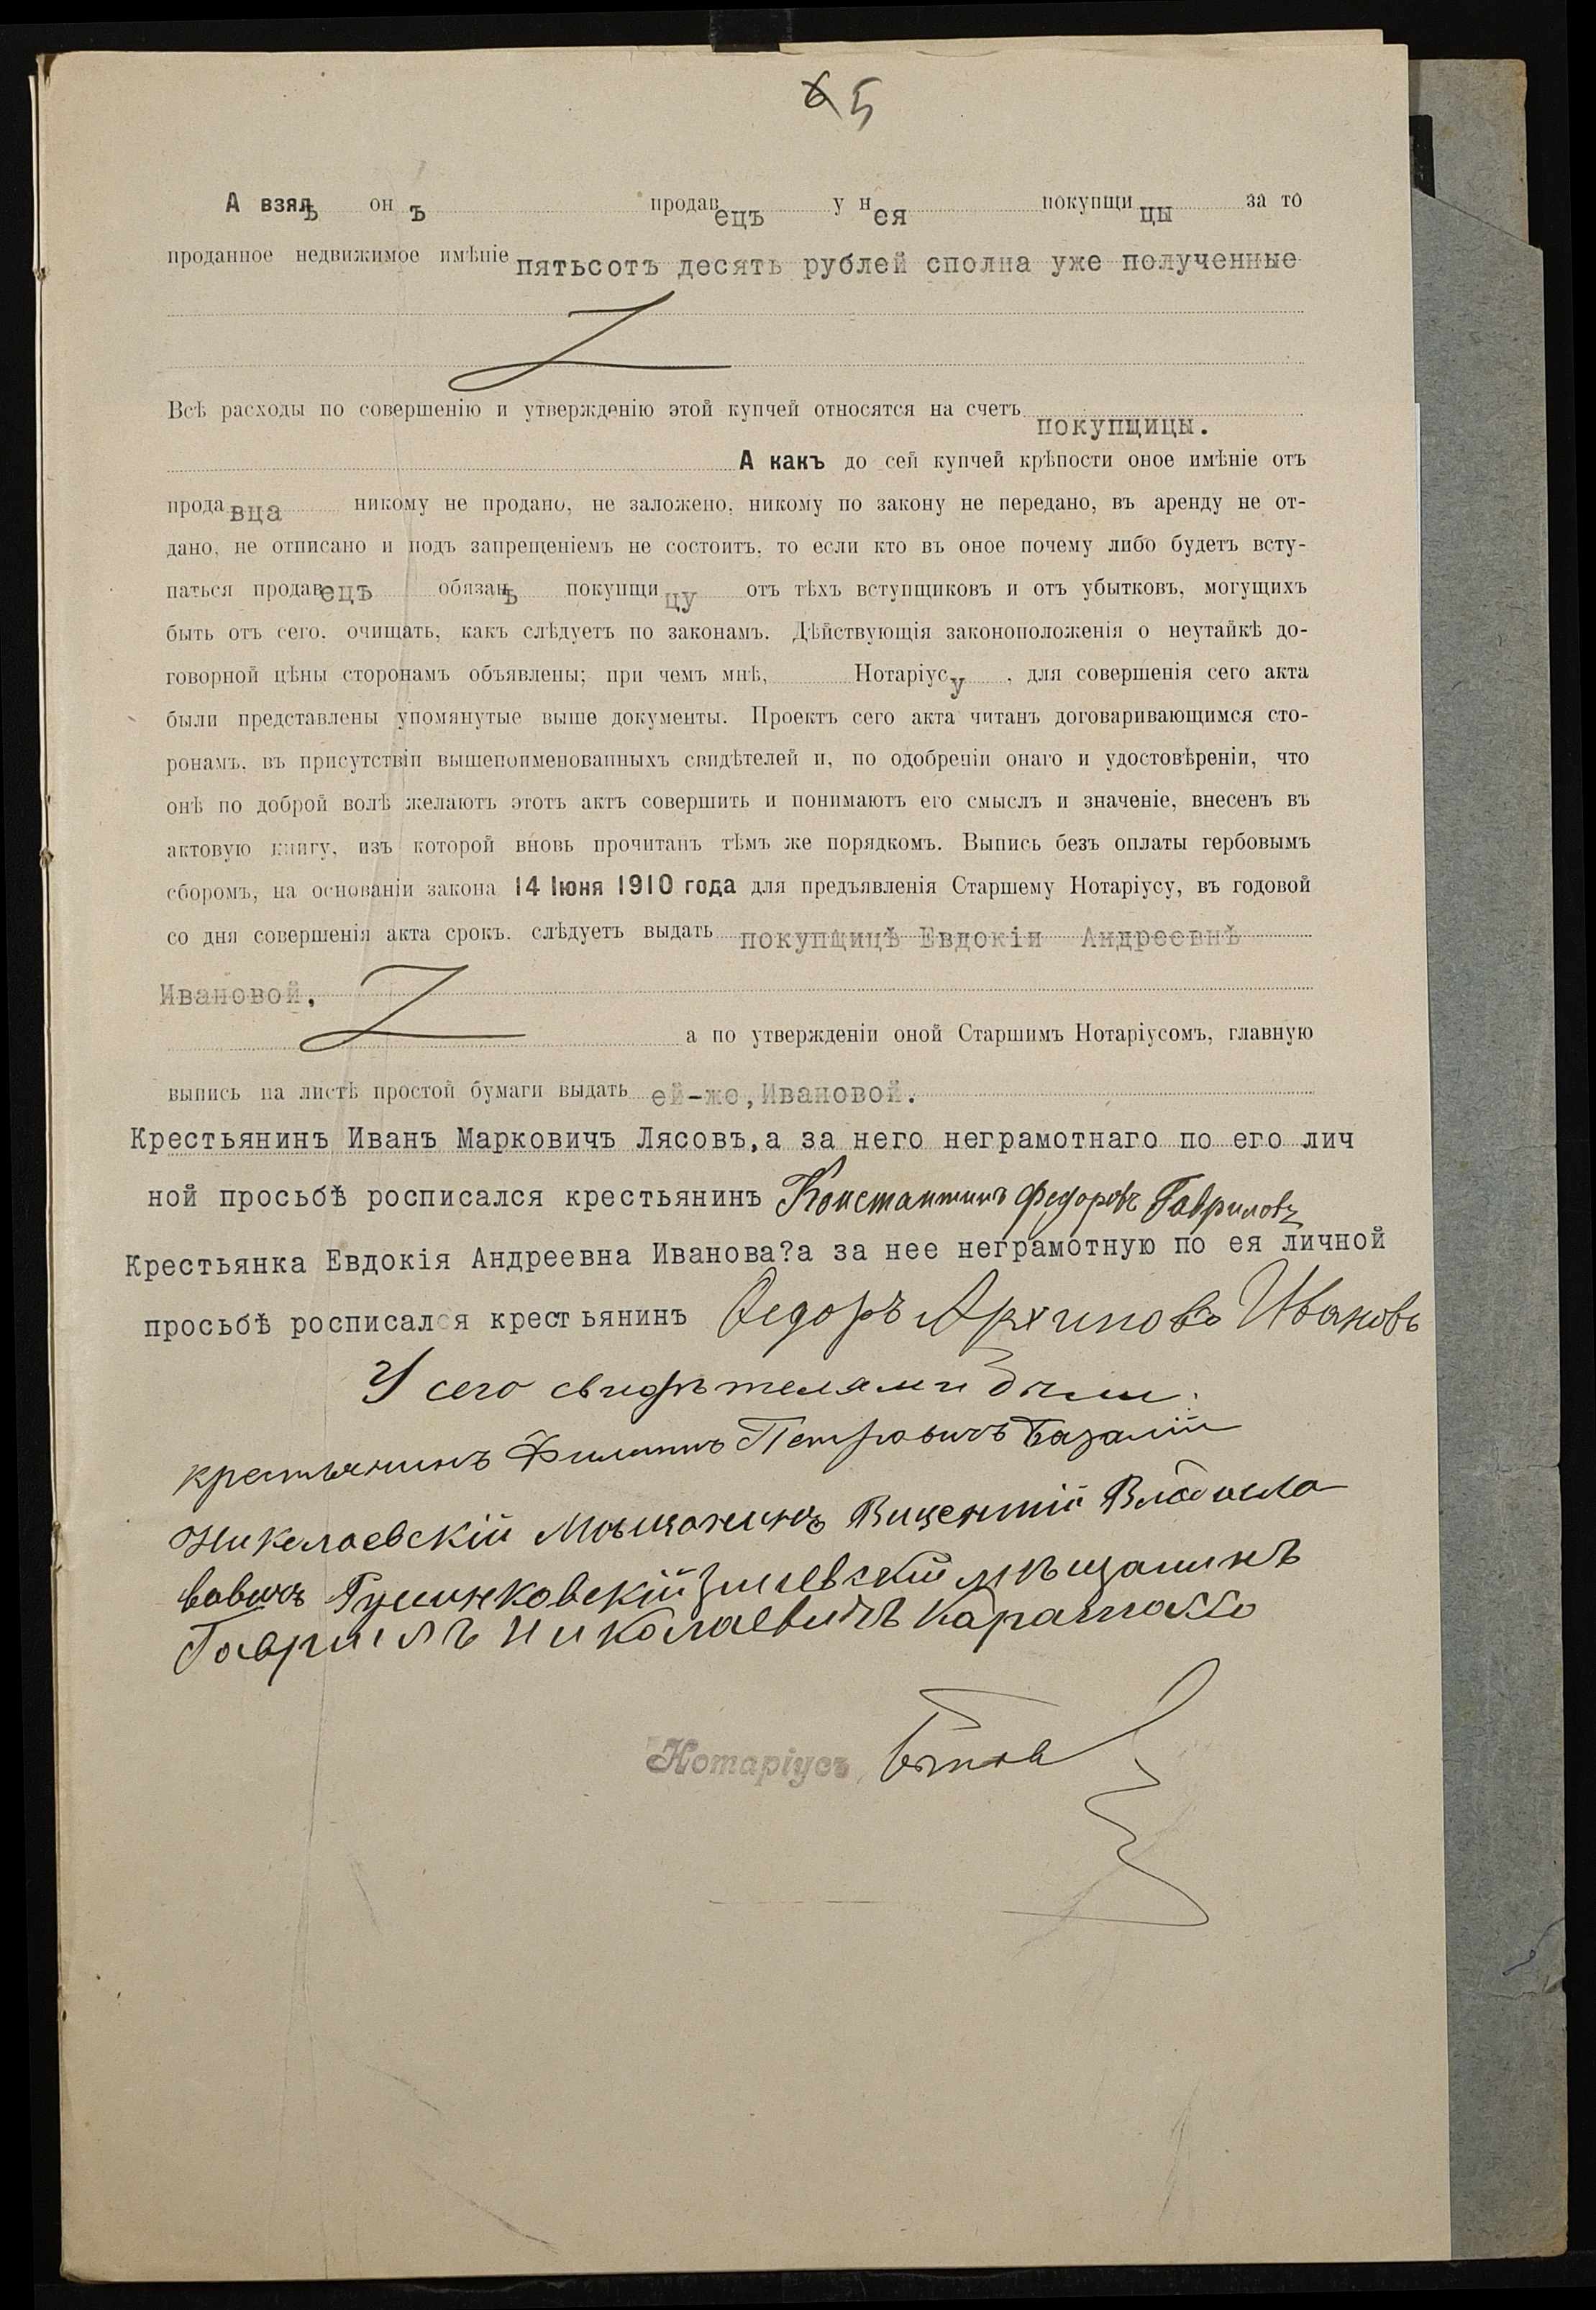 6 5
А взялъ онъ продавецъ у нея покупщицы за то
проданное недвижимое имѣніе пятьсотъ десять рублей сполна уже полученные
Всѣ расходы по совершенію и утвержденію этой купчей относятся на счетъ покупщицы.
А какъ до сей купчей крѣпости оное имѣніе отъ
продавца никому не продано, не заложено, никому по закону не передано, въ аренду не от-
дано, не отписано и подъ запрещеніемъ не состоитъ, то если кто въ оное почему либо будетъ всту-
паться продавецъ обязанъ покупщицу отъ тѣхъ вступщиковъ и отъ убытковъ, могущихъ
быть отъ сего, очищать, какъ слѣдуетъ по законамъ. Дѣйствующія законоположенія о неутайкѣ до-
говорной цѣны сторонамъ объявлены; при чемъ мнѣ, Нотаріусу, для совершенія сего акта
были представлены упомянутые выше документы. Проектъ сего акта читанъ договаривающимся сто-
ронамъ, въ присутствіи вышепоименованныхъ свидѣтелей и, по одобреніи онаго и удостовѣреніи, что
онѣ по доброй волѣ желаютъ этотъ актъ совершить и понимаютъ его смыслъ и значеніе, внесенъ въ
актовую книгу, изъ которой вновь прочитанъ тѣмъ же порядкомъ. Выпись безъ оплаты гербовымъ
сборомъ, на основаніи закона 14 Іюня 1910 года для предъявленія Старшему Нотаріусу, въ годовой
со дня совершенія акта срокъ, слѣдуетъ выдать покупщицѣ Евдокіи Андреевнѣ
Ивановой,
а по утвержденіи оной Старшимъ Нотаріусомъ, главную
выпись на листѣ простой бумаги выдать ей-же, Ивановой.
Крестьянинъ Иванъ Марковичъ Лясовъ, а за него неграмотнаго по его лич
ной просьбѣ росписался крестьянинъ Константинъ Федоровъ Гавриловъ
Крестьянка Евдокія Андреевна Иванова?а за нее неграмотную по ея личной
просьбѣ росписался крестьянинъ Федоръ Архиповъ Ивановъ
У сего свидѣтелями были:
крестьянинъ Филиппъ Петровичъ Базалій
Николаевскій Мѣщанинъ Викентій Владисла
вовичъ Змievскій мѣщанинъ
Гавриилъ Николаевичъ
Нотаріусъ